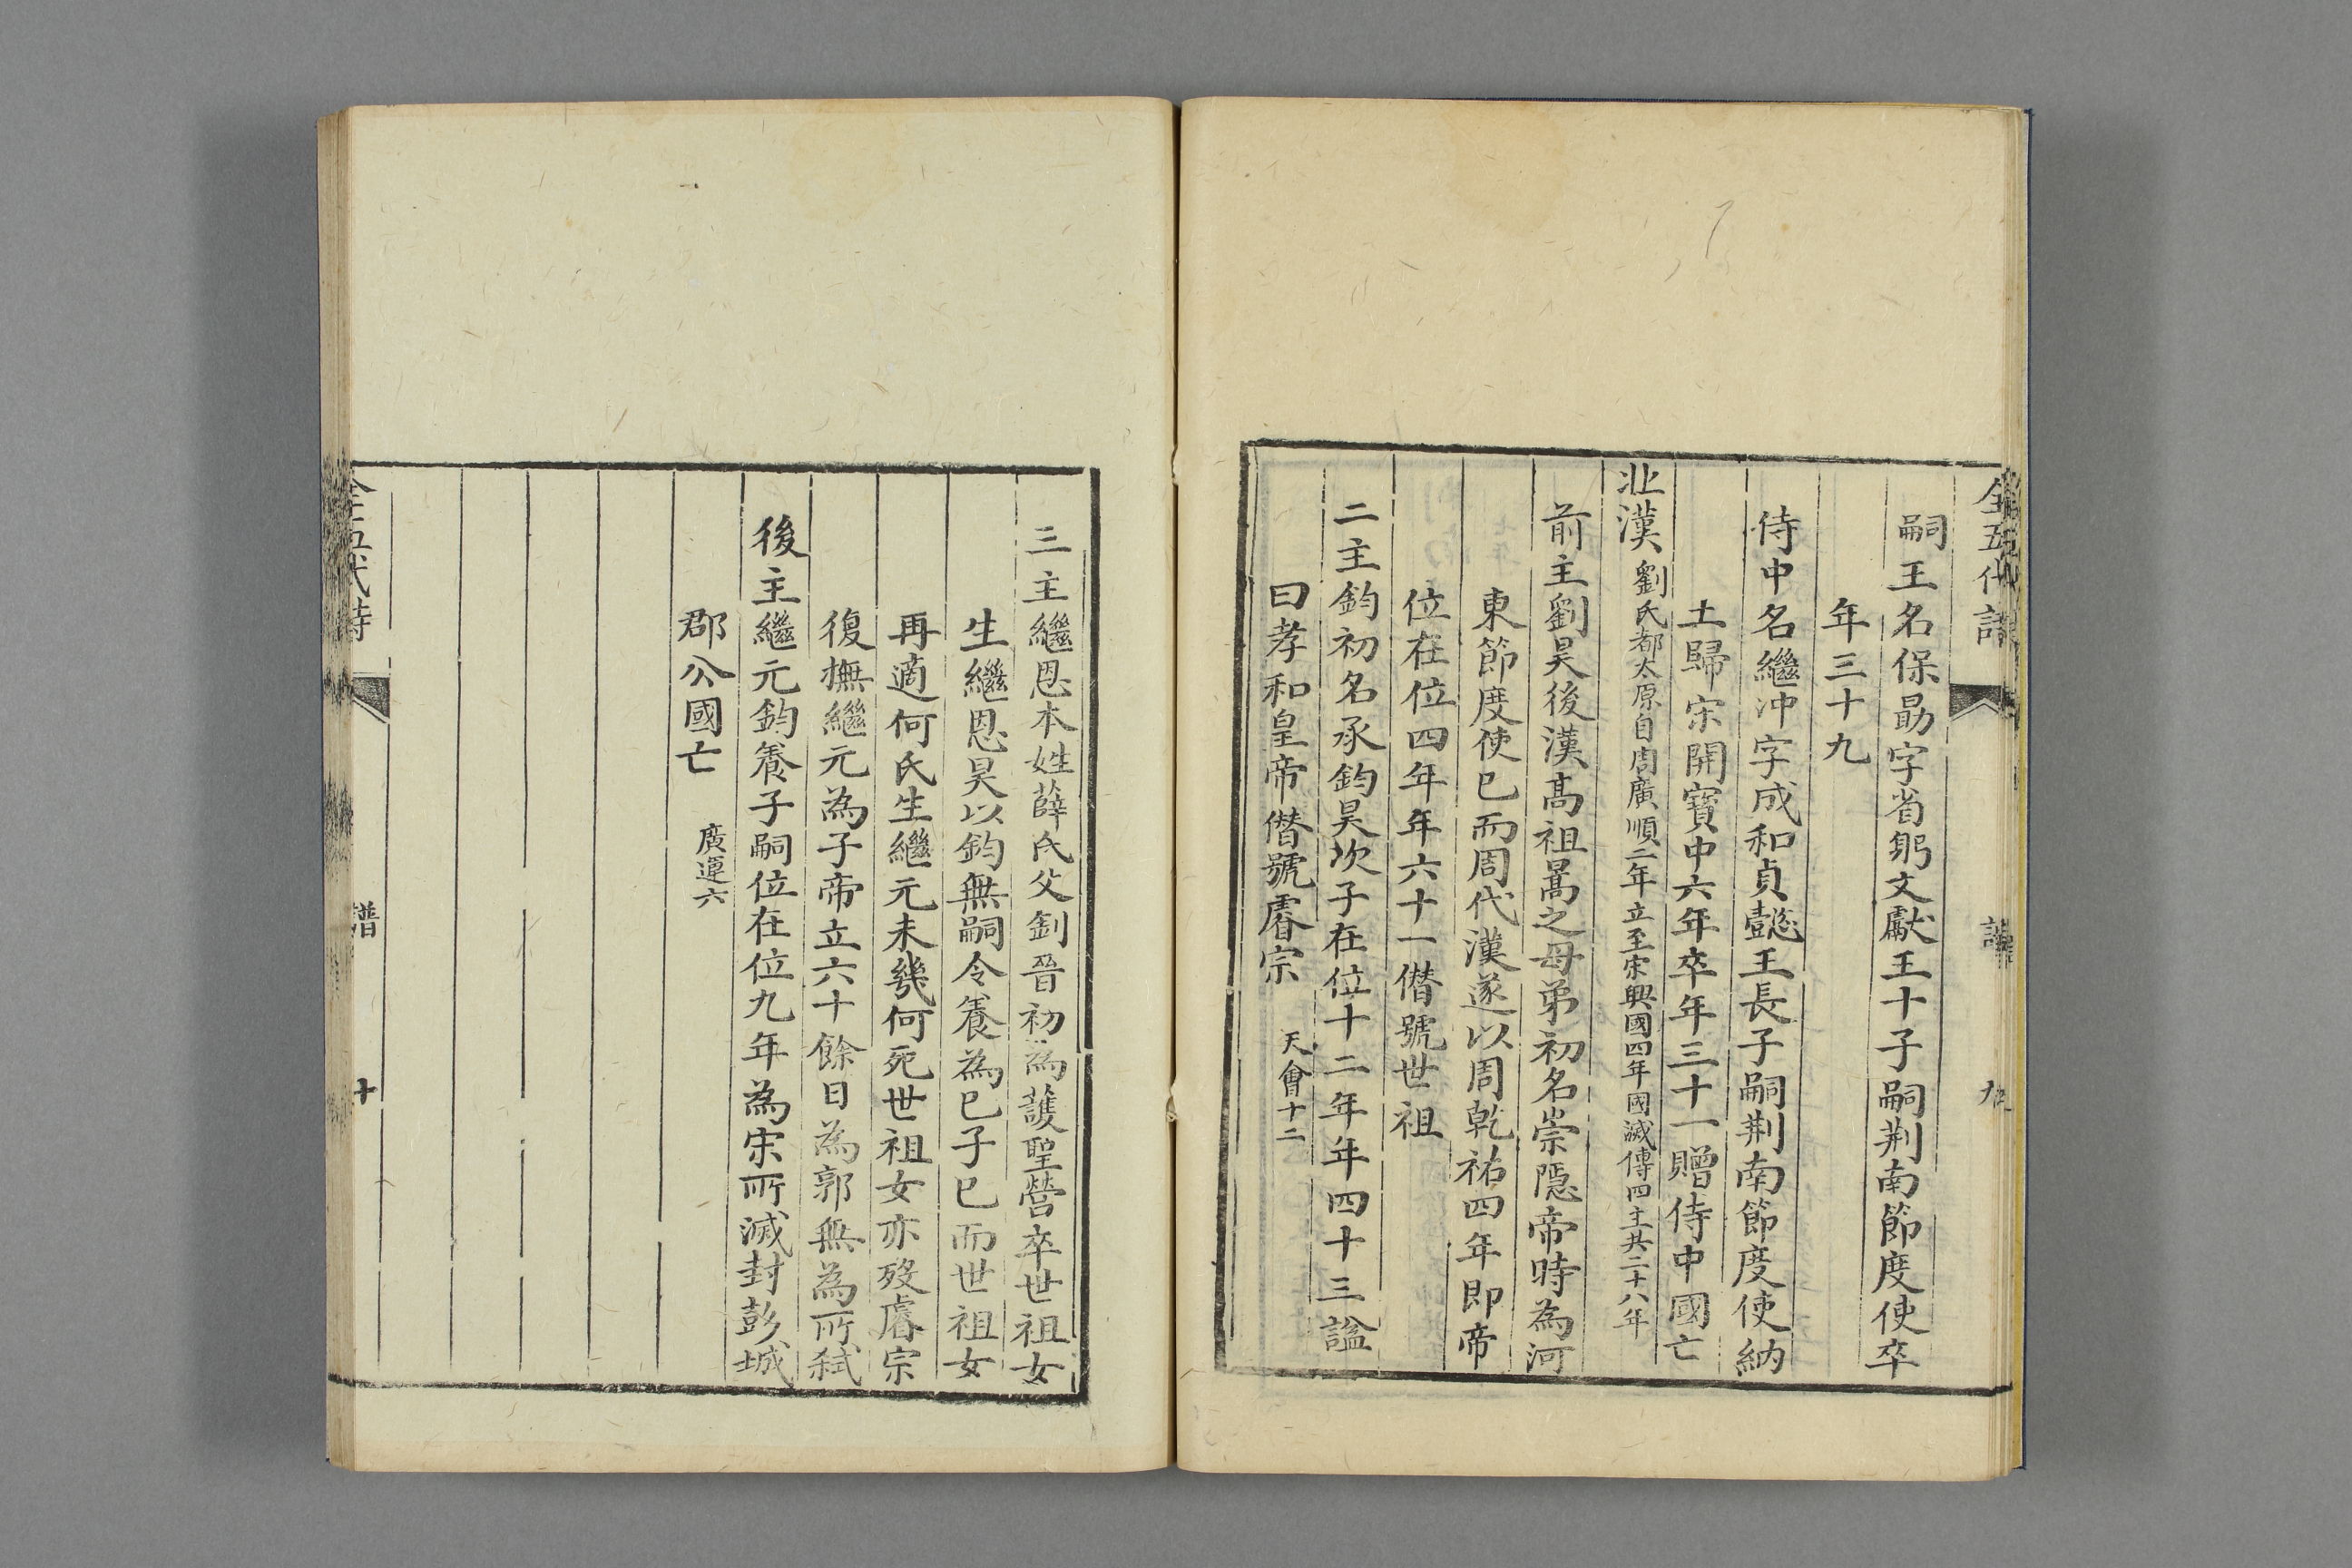 全五代詩
譜
九
嗣王名保勗字省躬文獻王十子嗣荆南節度使卒
年三十九
侍中名繼沖字成和貞懿王長子嗣荆南節度使納
土歸宋開寶中六年卒年三十一贈侍中國亡
北漢劉氏都太原自周廣順二年立至宋興國四年國滅傳四主共二十八年
前主劉旻後漢髙祖暠之母弟初名崇隱帝時為河
東節度使已而周代漢遂以周乾祐四年即帝
位在位四年年六十一僭號世祖
二主鈞初名承鈞旻次子在位十二年年四十三謚
曰孝和皇帝僭號睿宗天會十二
三主繼恩本姓薛氏父釗晉初為護聖營卒世祖女
生繼恩旻以鈞無嗣令養為已子已而世祖女
再適何氏生繼元未幾何死世祖女亦歿睿宗
復撫繼元為子帝立六十餘日為郭無為所弒
後主繼元鈞養子嗣位在位九年為宋所滅封彭城
郡公國亡廣運六
全五代詩
譜
十